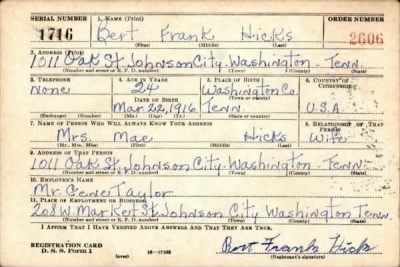 SERIAL NUMBER 1. NAME (Print) ORDER NUMBER
1716 Bert Frank Hicks 2606
(First) (Middle) (Last)
2. ADDRESS (Print)
1011 Oak St. Johnson City Washington - Tenn.
(Number and street or R. F. D. number) (Town) (County) (State)
3. TELEPHONE 4. AGE IN YEARS 5. PLACE OF BIRTH 6. COUNTRY OF CITIZENSHIP
None 24 Washington Co.
DATE OF BIRTH (Town or county)
Mar. 22, 1916 Tenn. U.S.A.
(Exchange) (Number) (Mo.) (Day) (Yr.) (State or country)
7. NAME OF PERSON WHO WILL ALWAYS KNOW YOUR ADDRESS 8. RELATIONSHIP OF THAT PERSON
Mrs. Mae Hicks Wife
(Mr., Mrs., Miss) (First) (Middle) (Last)
9. ADDRESS OF THAT PERSON
1011 Oak St. Johnson City - Washington - Tenn.
(Number and street or R. F. D. number) (Town) (County) (State)
10. EMPLOYER'S NAME
Mr. Gene Taylor
11. PLACE OF EMPLOYMENT OR BUSINESS
208 W. Market St. Johnson City Washington Tenn.
(Number and street or R. F. D. number) (Town) (County) (State)
I AFFIRM THAT I HAVE VERIFIED ABOVE ANSWERS AND THAT THEY ARE TRUE.
REGISTRATION CARD
D. S. S. Form 1 (over) Bert Frank Hicks
(Registrant's signature)